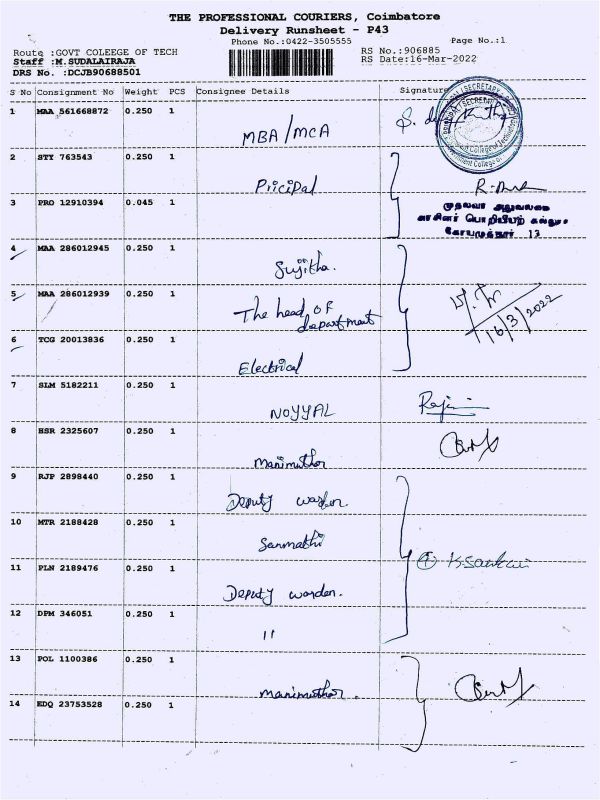 THE PROFESSIONAL COURIERS, Coimbatore
Delivery Runsheet - P43
Phone No.:0422-3505555
Page No.:1
Route :GOVT COLEEGE OF TECH
RS No.:906885
Staff :M.SUDALAIRAJA
RS Date:16-Mar-2022
DRS No. :DCJB90688501
S No Consignment No Weight PCS Consignee Details Signature
1 MAA 561668872 0.250 1
MBA/MCA
2 STY 763543 0.250 1
Pricipal
3 PRO 12910394 0.045 1
முதல்வர் அலுவலகம்
அரசினர் பொறியியற் கல்லூரி
கோயமுத்தூர் 13
4 MAA 286012945 0.250 1
Sujitha.
5 MAA 286012939 0.250 1
The head of
department
16/3/2022
6 TCG 20013836 0.250 1
Electrical
7 SLM 5182211 0.250 1
NOYYAL
8 HSR 2325607 0.250 1
Manimuthor
9 RJP 2898440 0.250 1
Deputy warden.
10 MTR 2188428 0.250 1
Sanmathi
11 PLN 2189476 0.250 1
Deputy warden.
12 DPM 346051 0.250 1
"
13 POL 1100386 0.250 1
Manimuthor.
14 EDQ 23753528 0.250 1